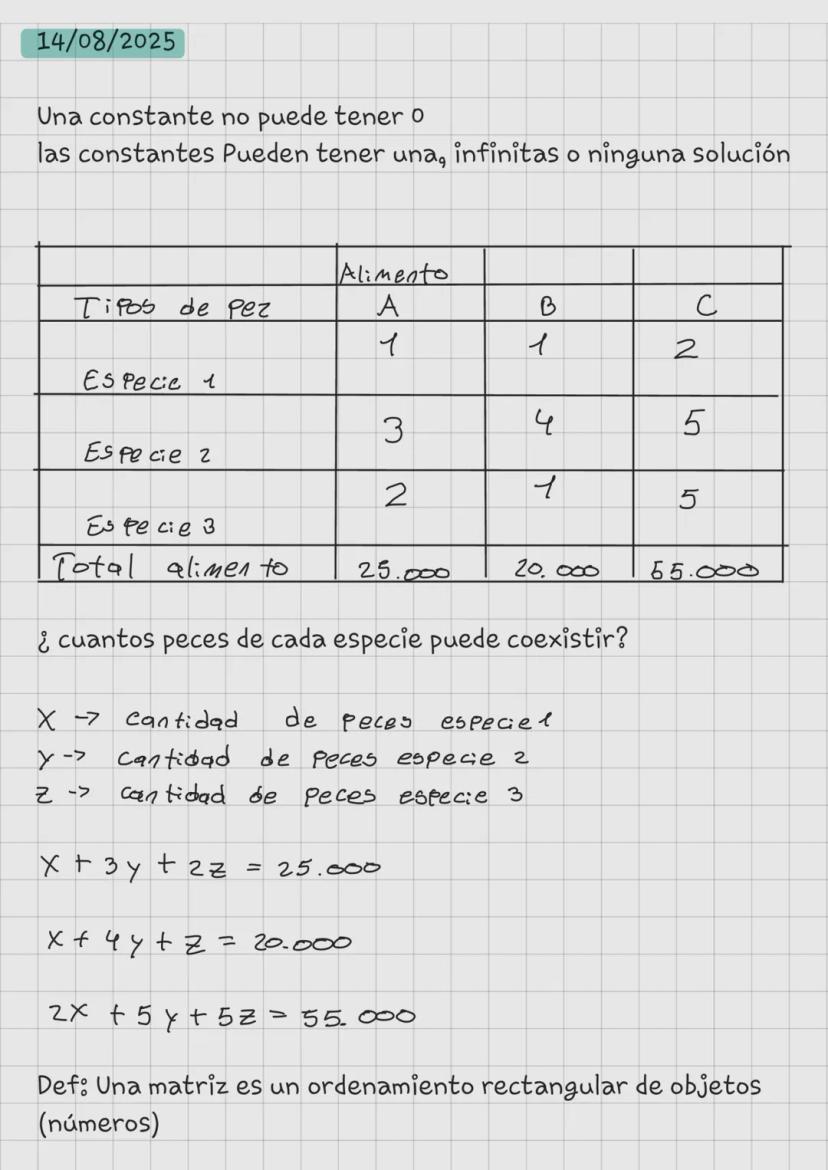 14/08/2025
Una constante no puede tener 0
las constantes Pueden tener una, infinitas o ninguna solución
Alimento
Tipos de pez A B C
Especie 1 1 1 2
Especie 2 3 4 5
Especie 3 2 1 5
Total alimento 25.000 20.000 55.000
¿ cuantos peces de cada especie puede coexistir?
X -> cantidad de peces especie 1
y -> cantidad de peces especie 2
z -> cantidad de peces especie 3
x + 3y + 2z = 25.000
x + 4y + z = 20.000
2x + 5y + 5z = 55.000
Def: Una matriz es un ordenamiento rectangular de objetos
(números)